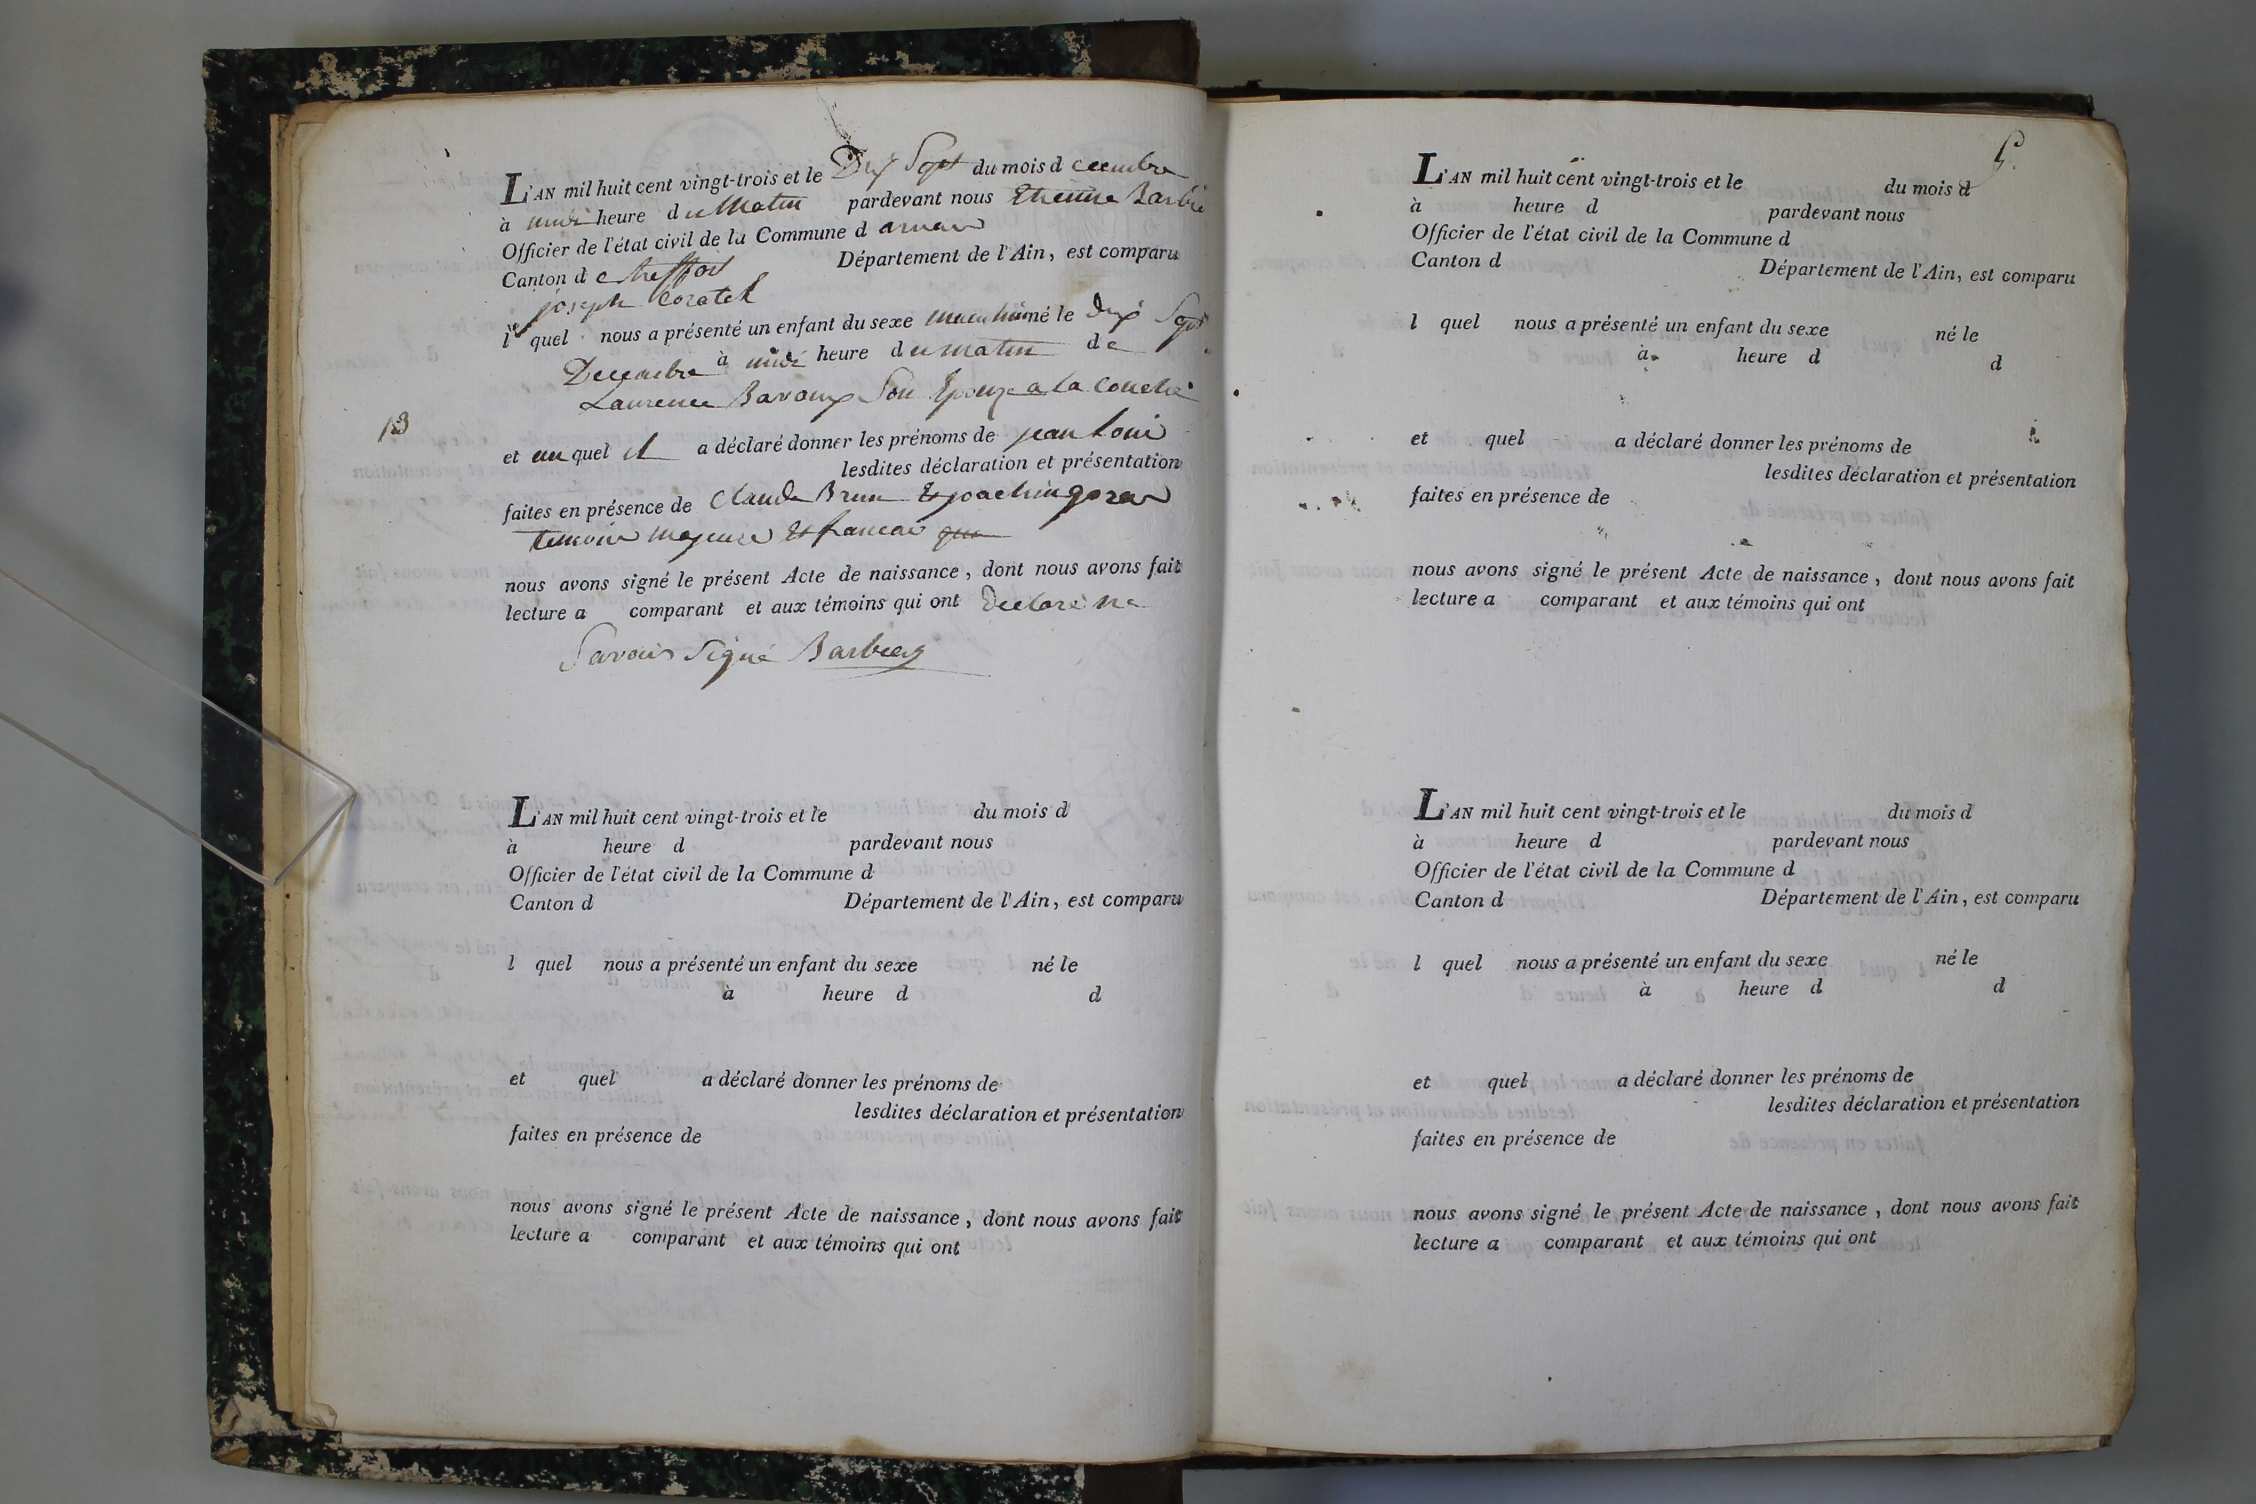 L'AN mil huit cent vingt-trois et le Dix Sept du mois d ecembre
à midi heure du Matin pardevant nous Etienne Barbie
Officier de l'état civil de la Commune d
Canton de treffort Département de l'Ain, est comparu
joseph
le quel nous a présenté un enfant du sexe né le Dix Sept
Decembre à midi heure du matin de
Laurence Son Epouze a la Couche
13
et au quel il a déclaré donner les prénoms de jean Loui
lesdites déclaration et présentation
faites en présence de Claude Brun Et joachin
temoins majeurs Et francai
nous avons signé le présent Acte de naissance, dont nous avons fait
lecture a comparant et aux témoins qui ont declaré ne
Savoir Signé Barbier
L'AN mil huit cent vingt-trois et le du mois d
à heure d pardevant nous
Officier de l'état civil de la Commune d
Canton d Département de l'Ain, est comparu
l quel nous a présenté un enfant du sexe né le
à heure d d
et quel a déclaré donner les prénoms de
lesdites déclaration et présentation
faites en présence de
nous avons signé le présent Acte de naissance, dont nous avons fait
lecture a comparant et aux témoins qui ont
5.
L'AN mil huit cent vingt-trois et le du mois d
à heure d pardevant nous
Officier de l'état civil de la Commune d
Canton d Département de l'Ain, est comparu
l quel nous a présenté un enfant du sexe né le
à heure d d
et quel a déclaré donner les prénoms de
lesdites déclaration et présentation
faites en présence de
nous avons signé le présent Acte de naissance, dont nous avons fait
lecture a comparant et aux témoins qui ont
L'AN mil huit cent vingt-trois et le du mois d
à heure d pardevant nous
Officier de l'état civil de la Commune d
Canton d Département de l'Ain, est comparu
l quel nous a présenté un enfant du sexe né le
à heure d d
et quel a déclaré donner les prénoms de
lesdites déclaration et présentation
faites en présence de
nous avons signé le présent Acte de naissance, dont nous avons fait
lecture a comparant et aux témoins qui ont